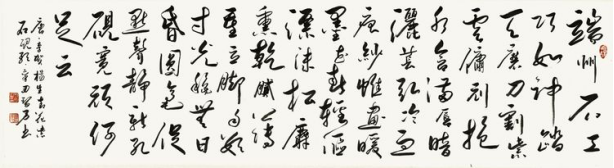 端州石工
巧如神踏
天磨刀割紫
雲傭刓抱
水含滿唇暗
灑萇弘冷血
痕紗帷晝暖
墨花春輕漚
漂沫松麝
薰乾膩薄
重立腳勻數
寸光秋無日
昏圓毫促
點聲靜新孔
硯寬頑何
足云
唐李賀楊生青花紫
石硯歌